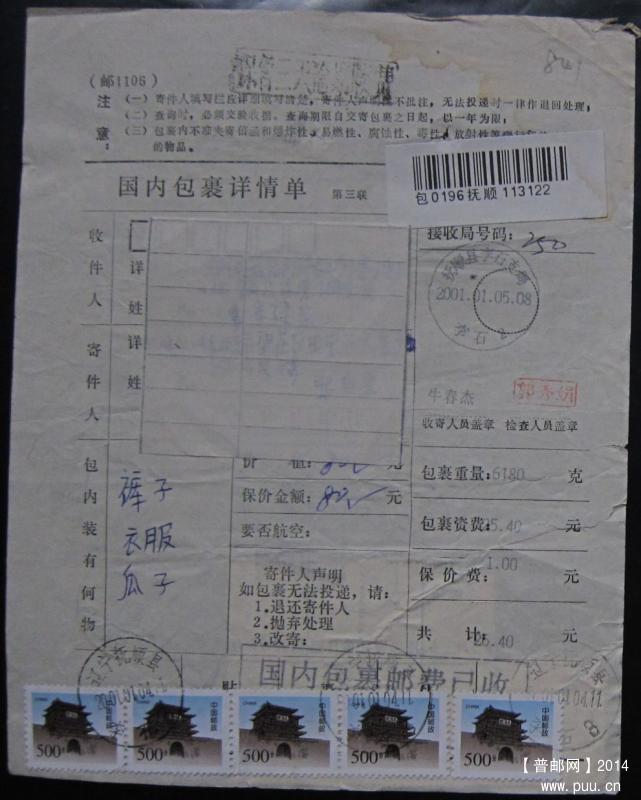 841
(邮1106)
注意:
(一)寄件人填写栏应详细填写清楚,寄件人声明 不批注,无法投递时一律作退回处理;
(二)查询时,必须交验收据。查询期限自交寄包裹之日起,以一年为限;
(三)包裹内不准夹寄信函和爆炸性、易燃性、腐蚀性、毒性、放射性等
的物品。
国内包裹详情单 第三联
包0196抚顺113122
接收局号码: 250
收件人
详
姓
寄件人
详
姓
2001.01.05.08
牛春杰
收寄人员盖章 检查人员盖章
包内装有何物
裤子
衣服
瓜子
价 值: 元
保价金额: 元
要否航空:
寄件人声明
如包裹无法投递,请:
1.退还寄件人
2.抛弃处理
3.改寄:
包裹重量:6180 克
包裹资费:25.40 元
保价费: 1.00 元
共 计: 26.40 元
国内包裹邮费已收
辽宁抚顺县
2001.01.04.11
中国邮政
500分
中国邮政
500分
中国邮政
500分
中国邮政
500分
中国邮政
500分
【普邮网】2014
www.puu.cn